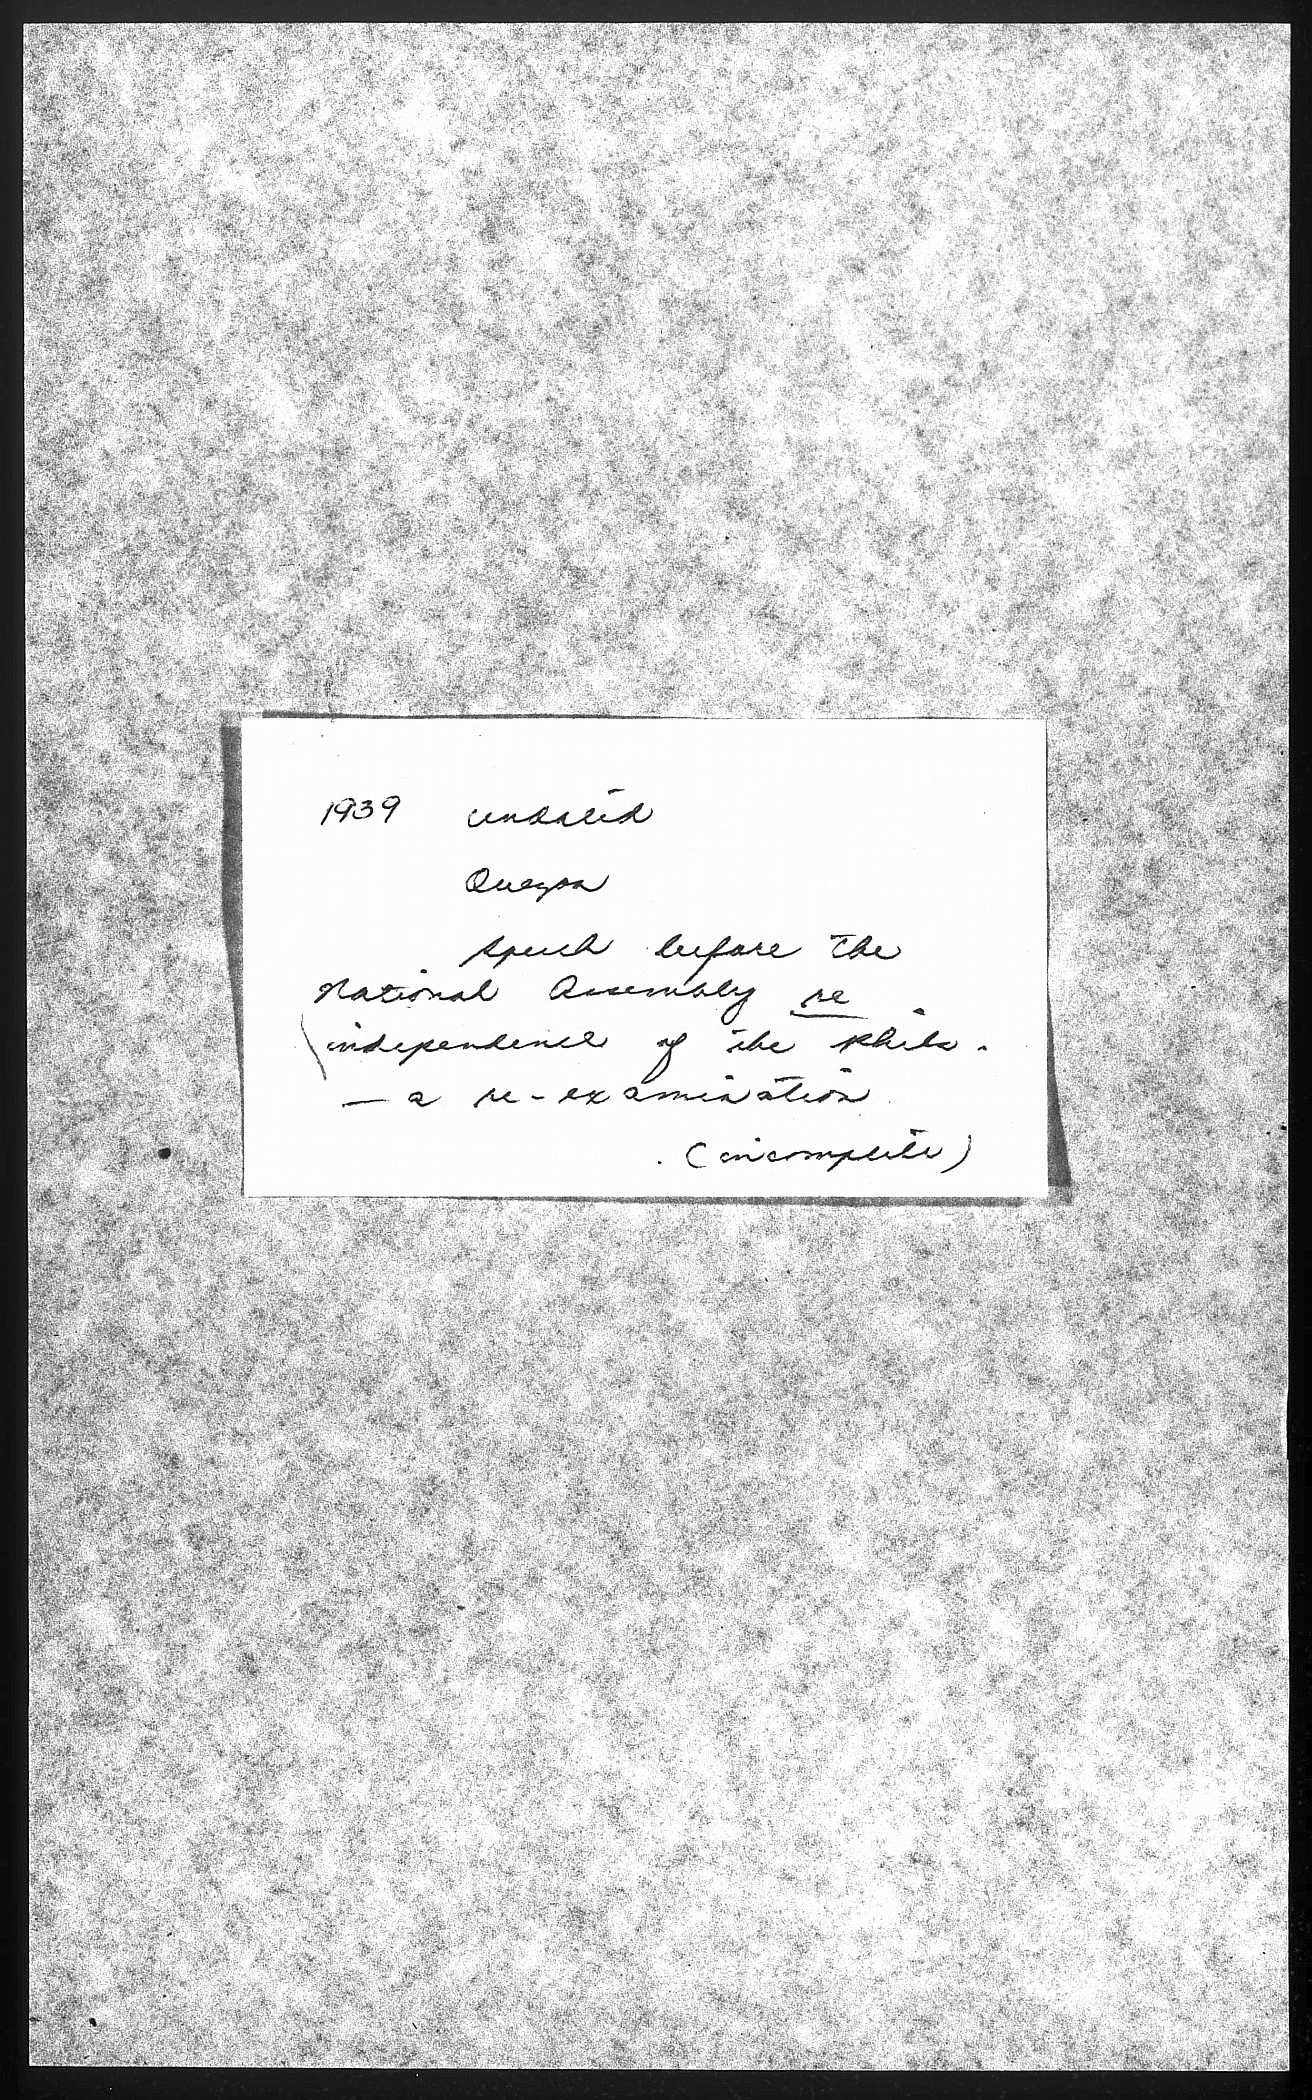 1939 undated
Quezon
speech before the
National Assembly re
independence of the Phils.
— a re-examination
(incomplete)